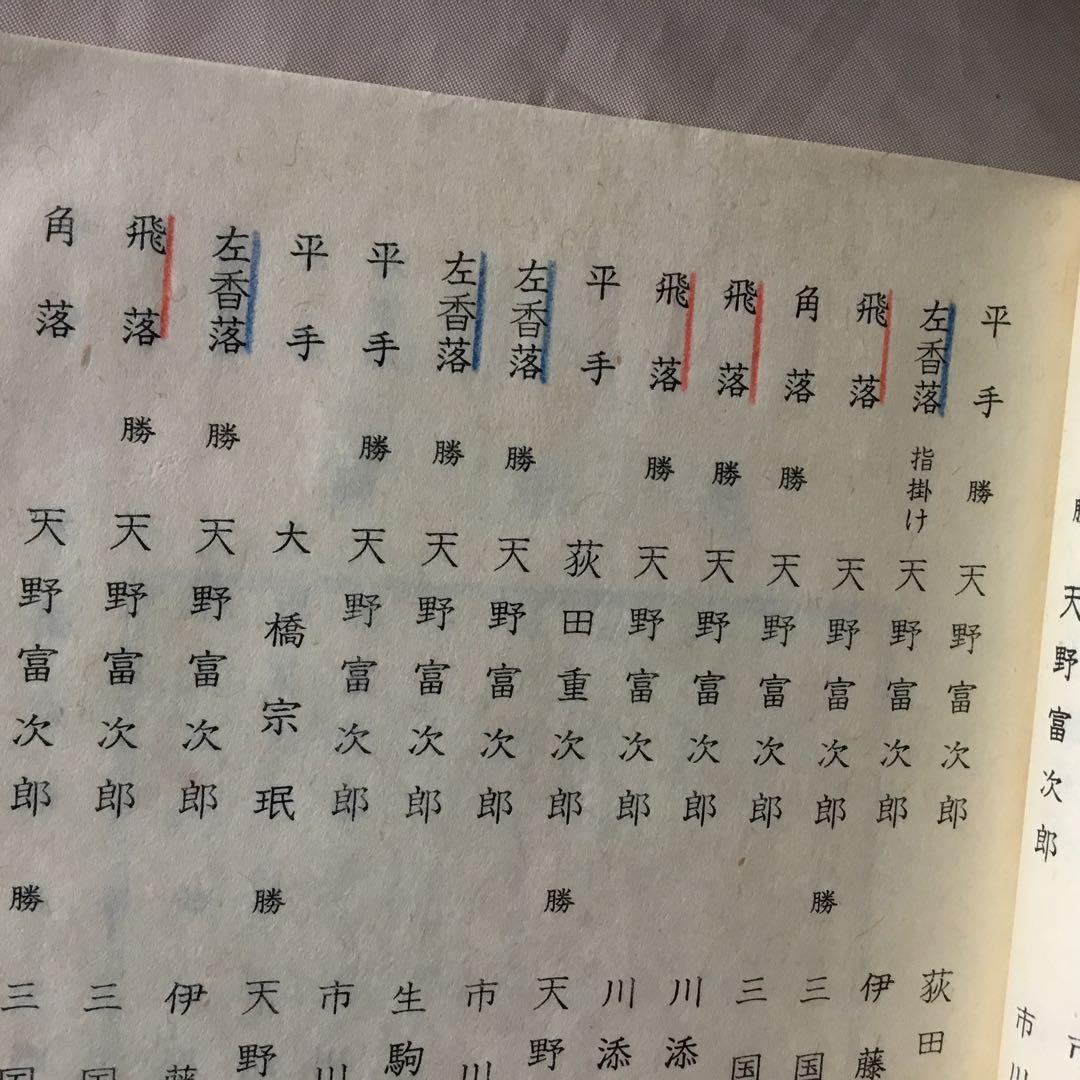 天野富次郎 市川
平手 勝 天野富次郎 荻田
左香落 指掛け 天野富次郎 伊藤
飛落 天野富次郎 勝 三国
角落 勝 天野富次郎 三国
飛落 勝 天野富次郎 川添
飛落 勝 天野富次郎 川添
平手 荻田重次郎 勝 天野
左香落 勝 天野富次郎 市川
左香落 勝 天野富次郎 生駒
平手 勝 天野富次郎 市川
平手 大橋宗珉 勝 天野
左香落 勝 天野富次郎 伊藤
飛落 勝 天野富次郎 三国
角落 天野富次郎 勝 三国